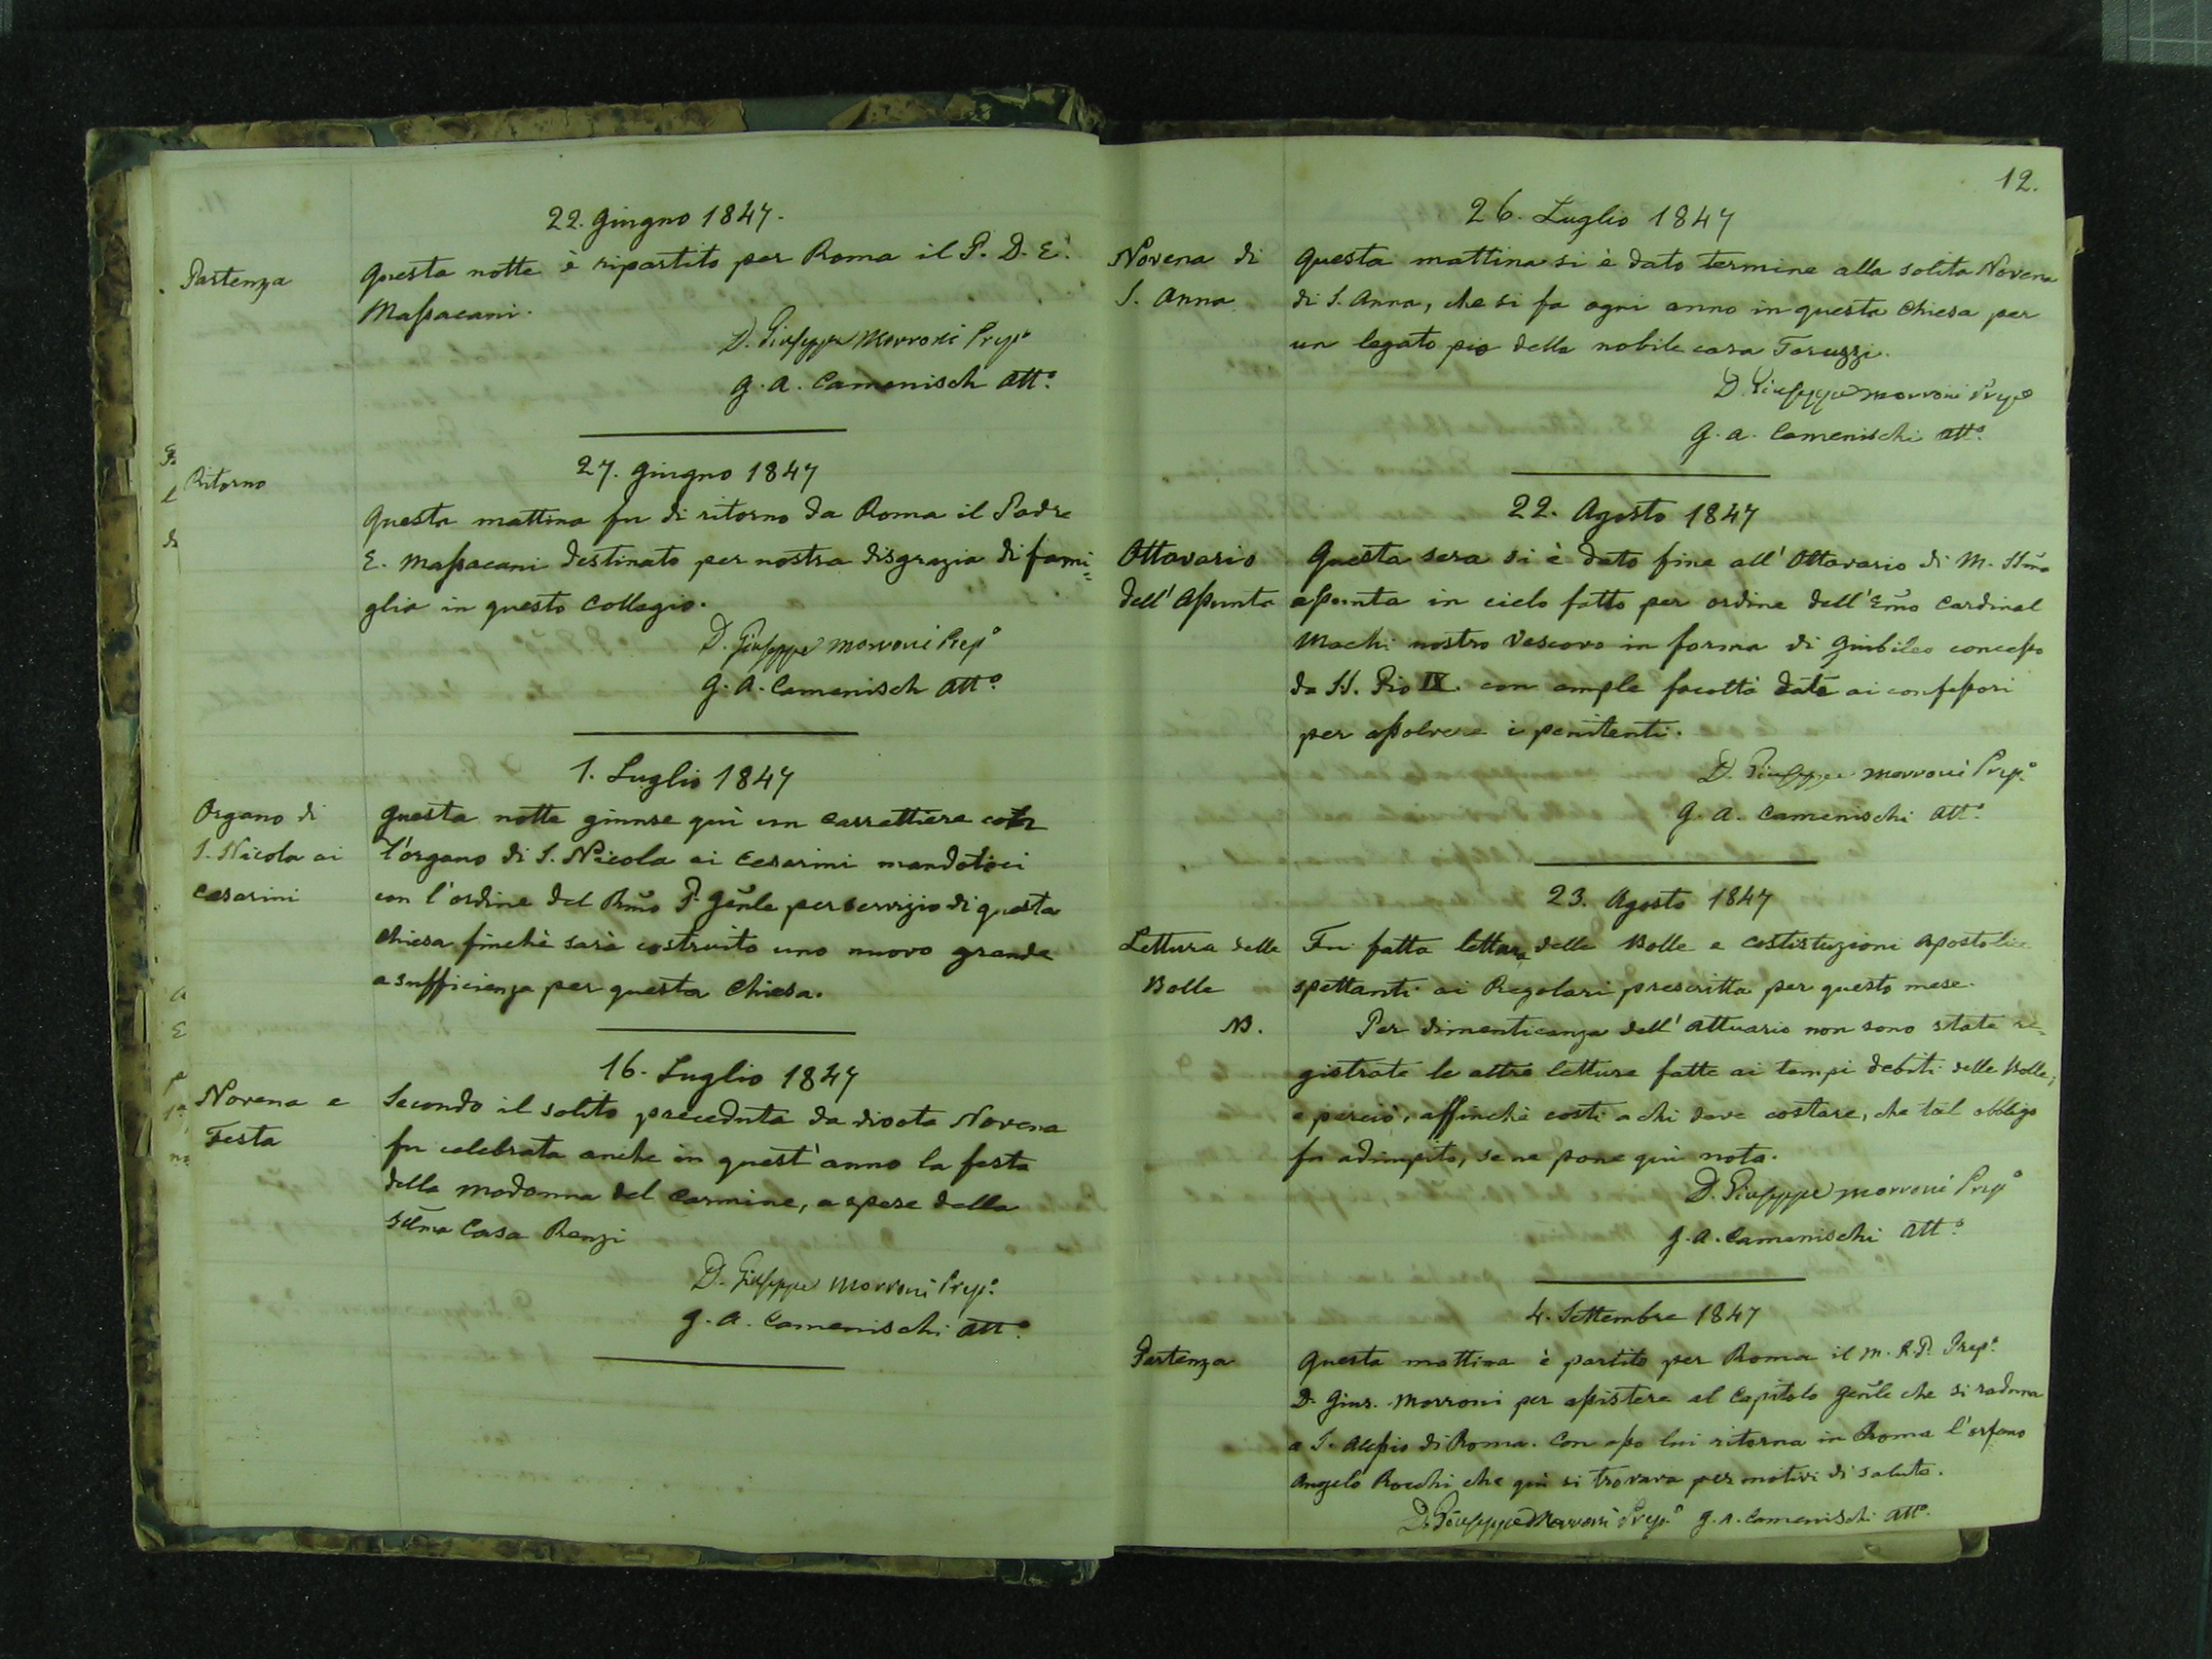 22. Giugno 1847.
Partenza
Questa notte è ripartito per Roma il P. D. E.
Massacani.
D. Giuseppe Morroni Prep.o
G. A. Camenisch Att.o
27. Giugno 1847
Ritorno
Questa mattina fu di ritorno da Roma il Padre
E. Massacani destinato per nostra disgrazia di fami=
glia in questo Collegio.
D. Giuseppe Morroni Prep.o
G. A. Camenisch Att.o
1. Luglio 1847
Organo di
S. Nicola ai
Cesarini
Questa notte giunse quì un carrettiere con
l'organo di S. Nicola ai Cesarini mandatoci
con l'ordine del Rmo P. Genle per servizio di questa
Chiesa finchè sarà costruito uno nuovo grande
a sufficienza per questa Chiesa.
16. Luglio 1847
Novena e
Festa
Secondo il solito preceduta da divota Novena
fu celebrata anche in quest'anno la festa
della Madonna del Carmine, a spese della
Casa Renzi
D. Giuseppe Morroni Prep.o
G. A. Camenischi Att.o
12.
26. Luglio 1847
Novena di
S. Anna
Questa mattina si è dato termine alla solita Novena
di S. Anna, che si fa ogni anno in questa Chiesa per
un legato pio della nobile casa Teruzzi.
D. Giuseppe Morroni Prep.o
G. A. Camenischi Att.o
22. Agosto 1847
Ottavario
dell'Assunta
Questa sera si è dato fine all'Ottavario di M. SSma
assunta in cielo fatto per ordine dell'Emo Cardinal
Machi nostro Vescovo in forma di Giubileo concesso
da S.S. Pio IX. con ample facoltà date ai confessori
per assolvere i penitenti.
D. Giuseppe Morroni Prep.o
G. A. Camenischi Att.o
23. Agosto 1847
Lettura delle
Bolle
Fu fatta lettura delle Bolle e costistuzioni Apostolice
spettanti ai Regolari prescritta per questo mese.
NB.
Per dimenticanza dell'Attuario non sono state re=
gistrate le altre letture fatte ai tempi debiti delle Bolle;
e perciò, affinchè costi a chi deve costare, che tal obbligo
fu adimpito, se ne pone quì nota.
D. Giuseppe Morroni Prep.o
G. A. Camenischi Att.o
4. Settembre 1847
Partenza
Questa mattina è partito per Roma il M. R. P. Prep.o
D. Gius. Morroni per assistere al Capitolo Genle che si raduna
a S. Alessio di Roma. Con esso lui ritorna in Roma l'orfano
Angelo Rocchi che quì si trovava per motivi di salute.
D. Giuseppe Morroni Prep.o G. A. Camenischi Att.o